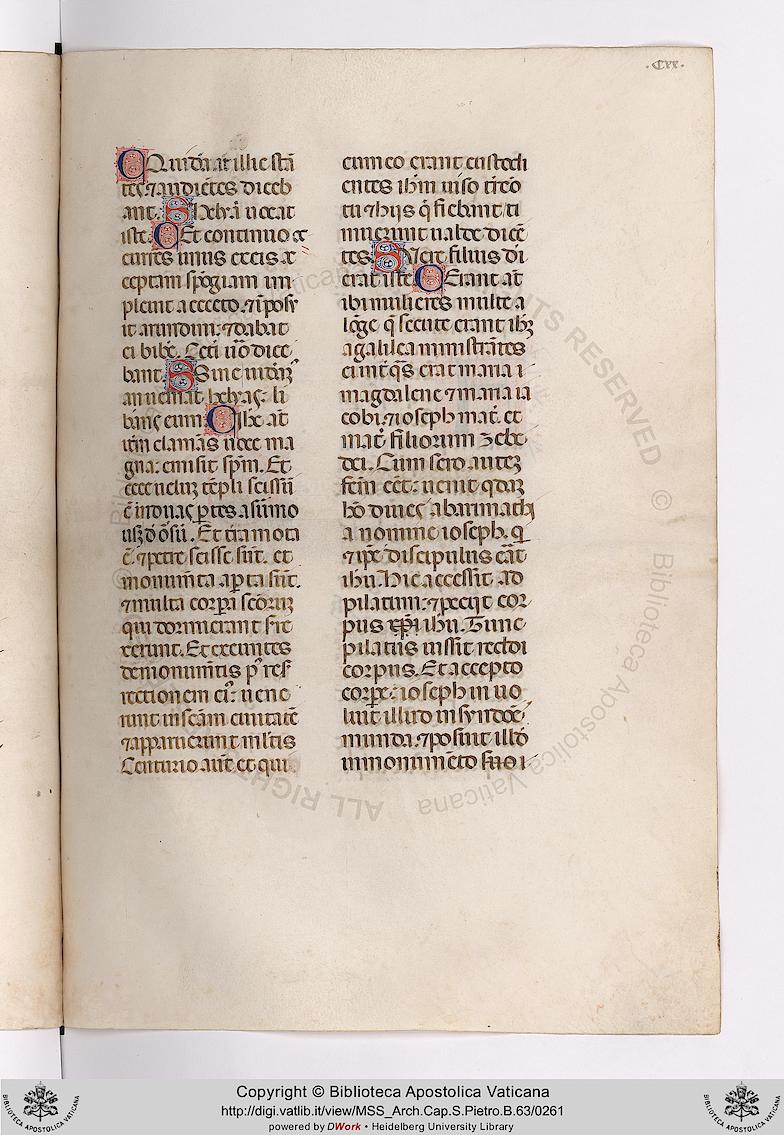 .Cxx.
C Quidā at̄ illic stā
tes ⁊ audiētes diceb
ant. S Helyā uocat
iste. C Et continuo cu
currēs unus ex eis ac
ceptam spōgiam im
pleuit aceto. ⁊ īposu
it arundini: ⁊ dabat
ei bibē. Ceti u͞o dice
bant S Sine uideamꝰ
an ueniat helyas: li
bāns eum C Ihc̄ at̄
itm̄ clamās uoce ma
gna: emisit sp̄m. Et
ecce uelum tēpli scissū
ē in duas ꝑtes a sūmo
usꝫ dōsū. Et t̄ra mota
ē. ⁊ petre scisse sūt. et
monum̄ta aꝑta sūt.
⁊ multa corpora sc̄oꝝ
qui dormierant sur
rexerunt. Et exeuntes
de monum̄tis p᷒ resur
rectionem eiꝰ: uene
runt in sc̄am ciuitatē
⁊ apparuerunt ml̄tis
Centurio aut̄ et qui
cum eo erant custodi
entes ih̄m uiso t̄re mo
tu ⁊ hijs q̄ fiebant/ ti
muerunt ualde dicē
tes. S Uere filius dei
erat iste C Erant at̄
ibi mulieres multe a
lōge q̄ secute erant ihꝫ
a galilea ministrātes
ei int̄ q̄s erat maria
magdalene ⁊ maria ia
cobi. ⁊ ioseph mat̄. et
mat̄ filiorum zebe
dei. Cum sero autē
fc̄m eēt: uenit qdaꝫ
hō diues ab arimathi
a nomine ioseph. q
⁊ ip̄e discipulus erat
ih̄u. Hic accessit ad
pilatum: ⁊ petijt cor
pus xp̄i ih̄u. Tunc
pilatus iussit reddi
corpus. Et accepto
corpore: ioseph inuo
luit illud in syndone
munda. ⁊ posuit illd̄
in monumēto suo
Copyright © Biblioteca Apostolica Vaticana
http://digi.vatlib.it/view/MSS_Arch.Cap.S.Pietro.B.63/0261
powered by DWork • Heidelberg University Library
BIBLIOTECA APOSTOLICA VATICANA
BIBLIOTECA APOSTOLICA VATICANA
© Biblioteca Apostolica Vaticana ALL RIGHTS RESERVED